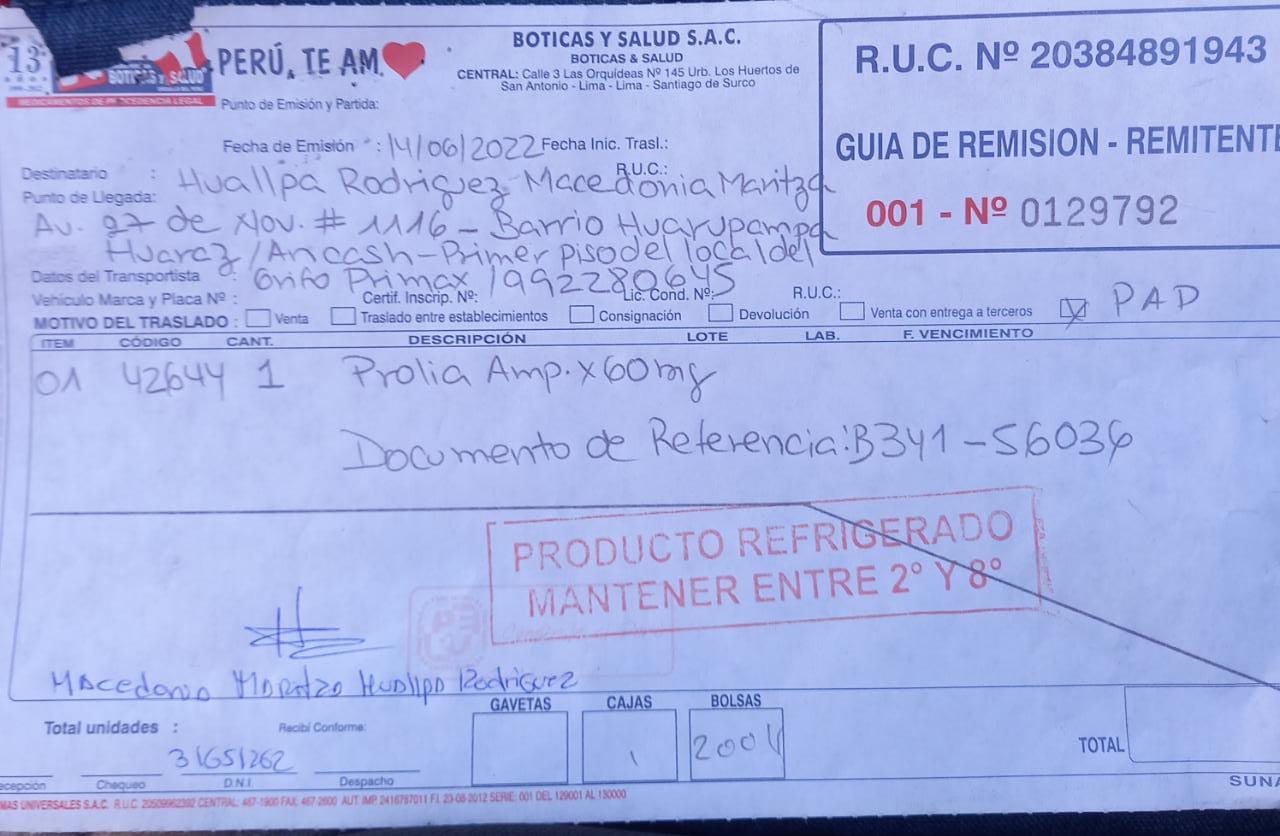 13
AÑOS
BOTICAS Y SALUD
MEDICAMENTOS DE PROCEDENCIA LEGAL
PERÚ, TE AM
BOTICAS Y SALUD S.A.C.
BOTICAS & SALUD
CENTRAL: Calle 3 Las Orquídeas Nº 145 Urb. Los Huertos de
San Antonio - Lima - Lima - Santiago de Surco
R.U.C. Nº 20384891943
GUIA DE REMISION - REMITENTE
001 - Nº 0129792
Punto de Emisión y Partida:
Fecha de Emisión : 14/06/2022 Fecha Inic. Trasl.:
Destinatario : Huallpa Rodriguez Macedonia Maritza R.U.C.:
Punto de Llegada:
Av. 27 de Nov. # 1116 - Barrio Huarupampa
Huaraz/Ancash - Primer piso del local del
Datos del Transportista : Grifo Primax / 992280645
Vehículo Marca y Placa Nº : Certif. Inscrip. Nº: Lic. Cond. Nº: R.U.C.:
MOTIVO DEL TRASLADO : Venta Traslado entre establecimientos Consignación Devolución Venta con entrega a terceros PAD
ITEM CÓDIGO CANT. DESCRIPCIÓN LOTE LAB. F. VENCIMIENTO
01 42644 1 Prolia Amp. x 60mg
Documento de Referencia: B341-56036
PRODUCTO REFRIGERADO
MANTENER ENTRE 2° Y 8°
Macedonia Maritza Huallpa Rodriguez
Total unidades : Recibí Conforme: GAVETAS CAJAS BOLSAS
31651262 1 TOTAL
ecepción Chequeo D.N.I. Despacho SUNA
MAS UNIVERSALES S.A.C. R.U.C. 20509962392 CENTRAL: 467-1900 FAX: 467-2600 AUT. IMP. 2416787011 F.I. 23-08-2012 SERIE: 001 DEL 129001 AL 130000